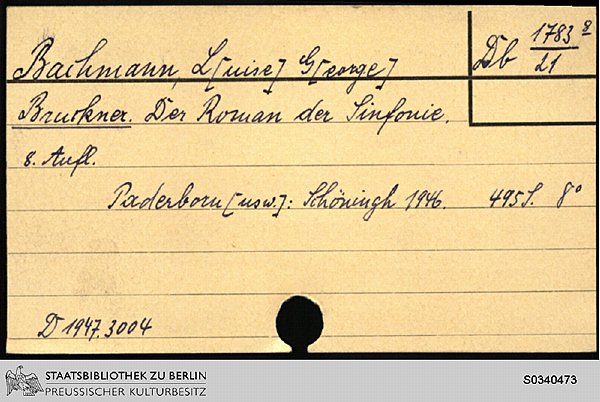 Db 1783 8
21
Bachmann, L[uise] G[eorge]
Bruckner. Der Roman der Sinfonie.
8. Aufl.
Paderborn [usw.]: Schöningh 1946. 495 S. 8°
D 1947.3004
STAATSBIBLIOTHEK ZU BERLIN
PREUSSISCHER KULTURBESITZ
S0340473